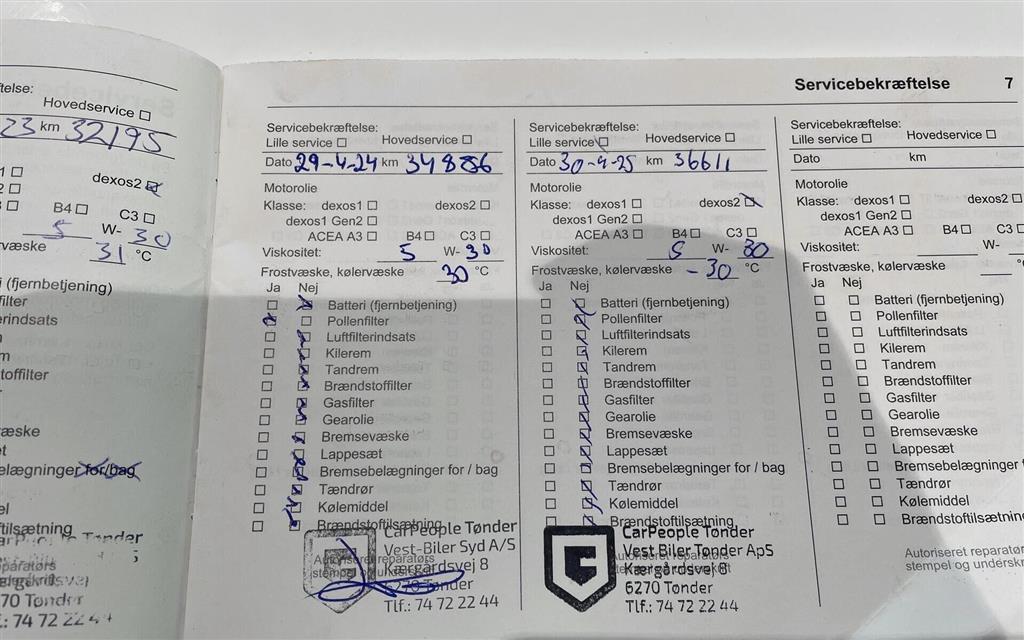 Servicebekræftelse 7
Hovedservice
23 km 32195
dexos2
B4 C3
5 W- 30
31 °C
(fjernbetjening)
belægninger for/bag
70 Tønder
Servicebekræftelse:
Lille service Hovedservice
Dato 29-4-24 km 34886
Motorolie
Klasse: dexos1 dexos2
dexos1 Gen2
ACEA A3 B4 C3
Viskositet: 5 W- 30
Frostvæske, kølervæske 30 °C
Ja Nej
Batteri (fjernbetjening)
Pollenfilter
Luftfilterindsats
Kilerem
Tandrem
Brændstoffilter
Gasfilter
Gearolie
Bremsevæske
Lappesæt
Bremsebelægninger for / bag
Tændrør
Kølemiddel
Brændstoftilsætning
CarPeople Tønder
Vest-Biler Syd A/S
Kærgårdsvej 8
6270 Tønder
Tlf.: 74 72 22 44
Servicebekræftelse:
Lille service Hovedservice
Dato 30-4-25 km 36611
Motorolie
Klasse: dexos1 dexos2
dexos1 Gen2
ACEA A3 B4 C3
Viskositet: 5 W- 30
Frostvæske, kølervæske -30 °C
Ja Nej
Batteri (fjernbetjening)
Pollenfilter
Luftfilterindsats
Kilerem
Tandrem
Brændstoffilter
Gasfilter
Gearolie
Bremsevæske
Lappesæt
Bremsebelægninger for / bag
Tændrør
Kølemiddel
Brændstoftilsætning
CarPeople Tønder
Vest-Biler Tønder ApS
Kærgårdsvej 8
6270 Tønder
Tlf.: 74 72 22 44
Servicebekræftelse:
Lille service Hovedservice
Dato km
Motorolie
Klasse: dexos1 dexos2
dexos1 Gen2
ACEA A3 B4 C3
Viskositet: W-
Frostvæske, kølervæske °C
Ja Nej
Batteri (fjernbetjening)
Pollenfilter
Luftfilterindsats
Kilerem
Tandrem
Brændstoffilter
Gasfilter
Gearolie
Bremsevæske
Lappesæt
Bremsebelægninger for
Tændrør
Kølemiddel
Brændstoftilsætning
Autoriseret reparatør
stempel og underskr